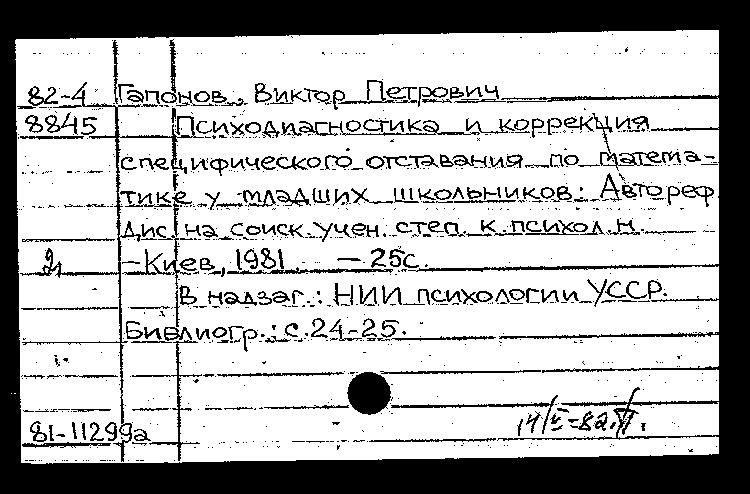 82-4 Гапонов, Виктор Петрович
8845 Психодиагностика и коррекция
специфического отставания по матема-
тике у младших школьников: Автореф.
Дис. на соиск. учен. степ. к. психол. н.
2 -Киев, 1981. - 25с.
В надзаг.: НИИ психологии УССР.
Библиогр.: с. 24-25.
81-11299а